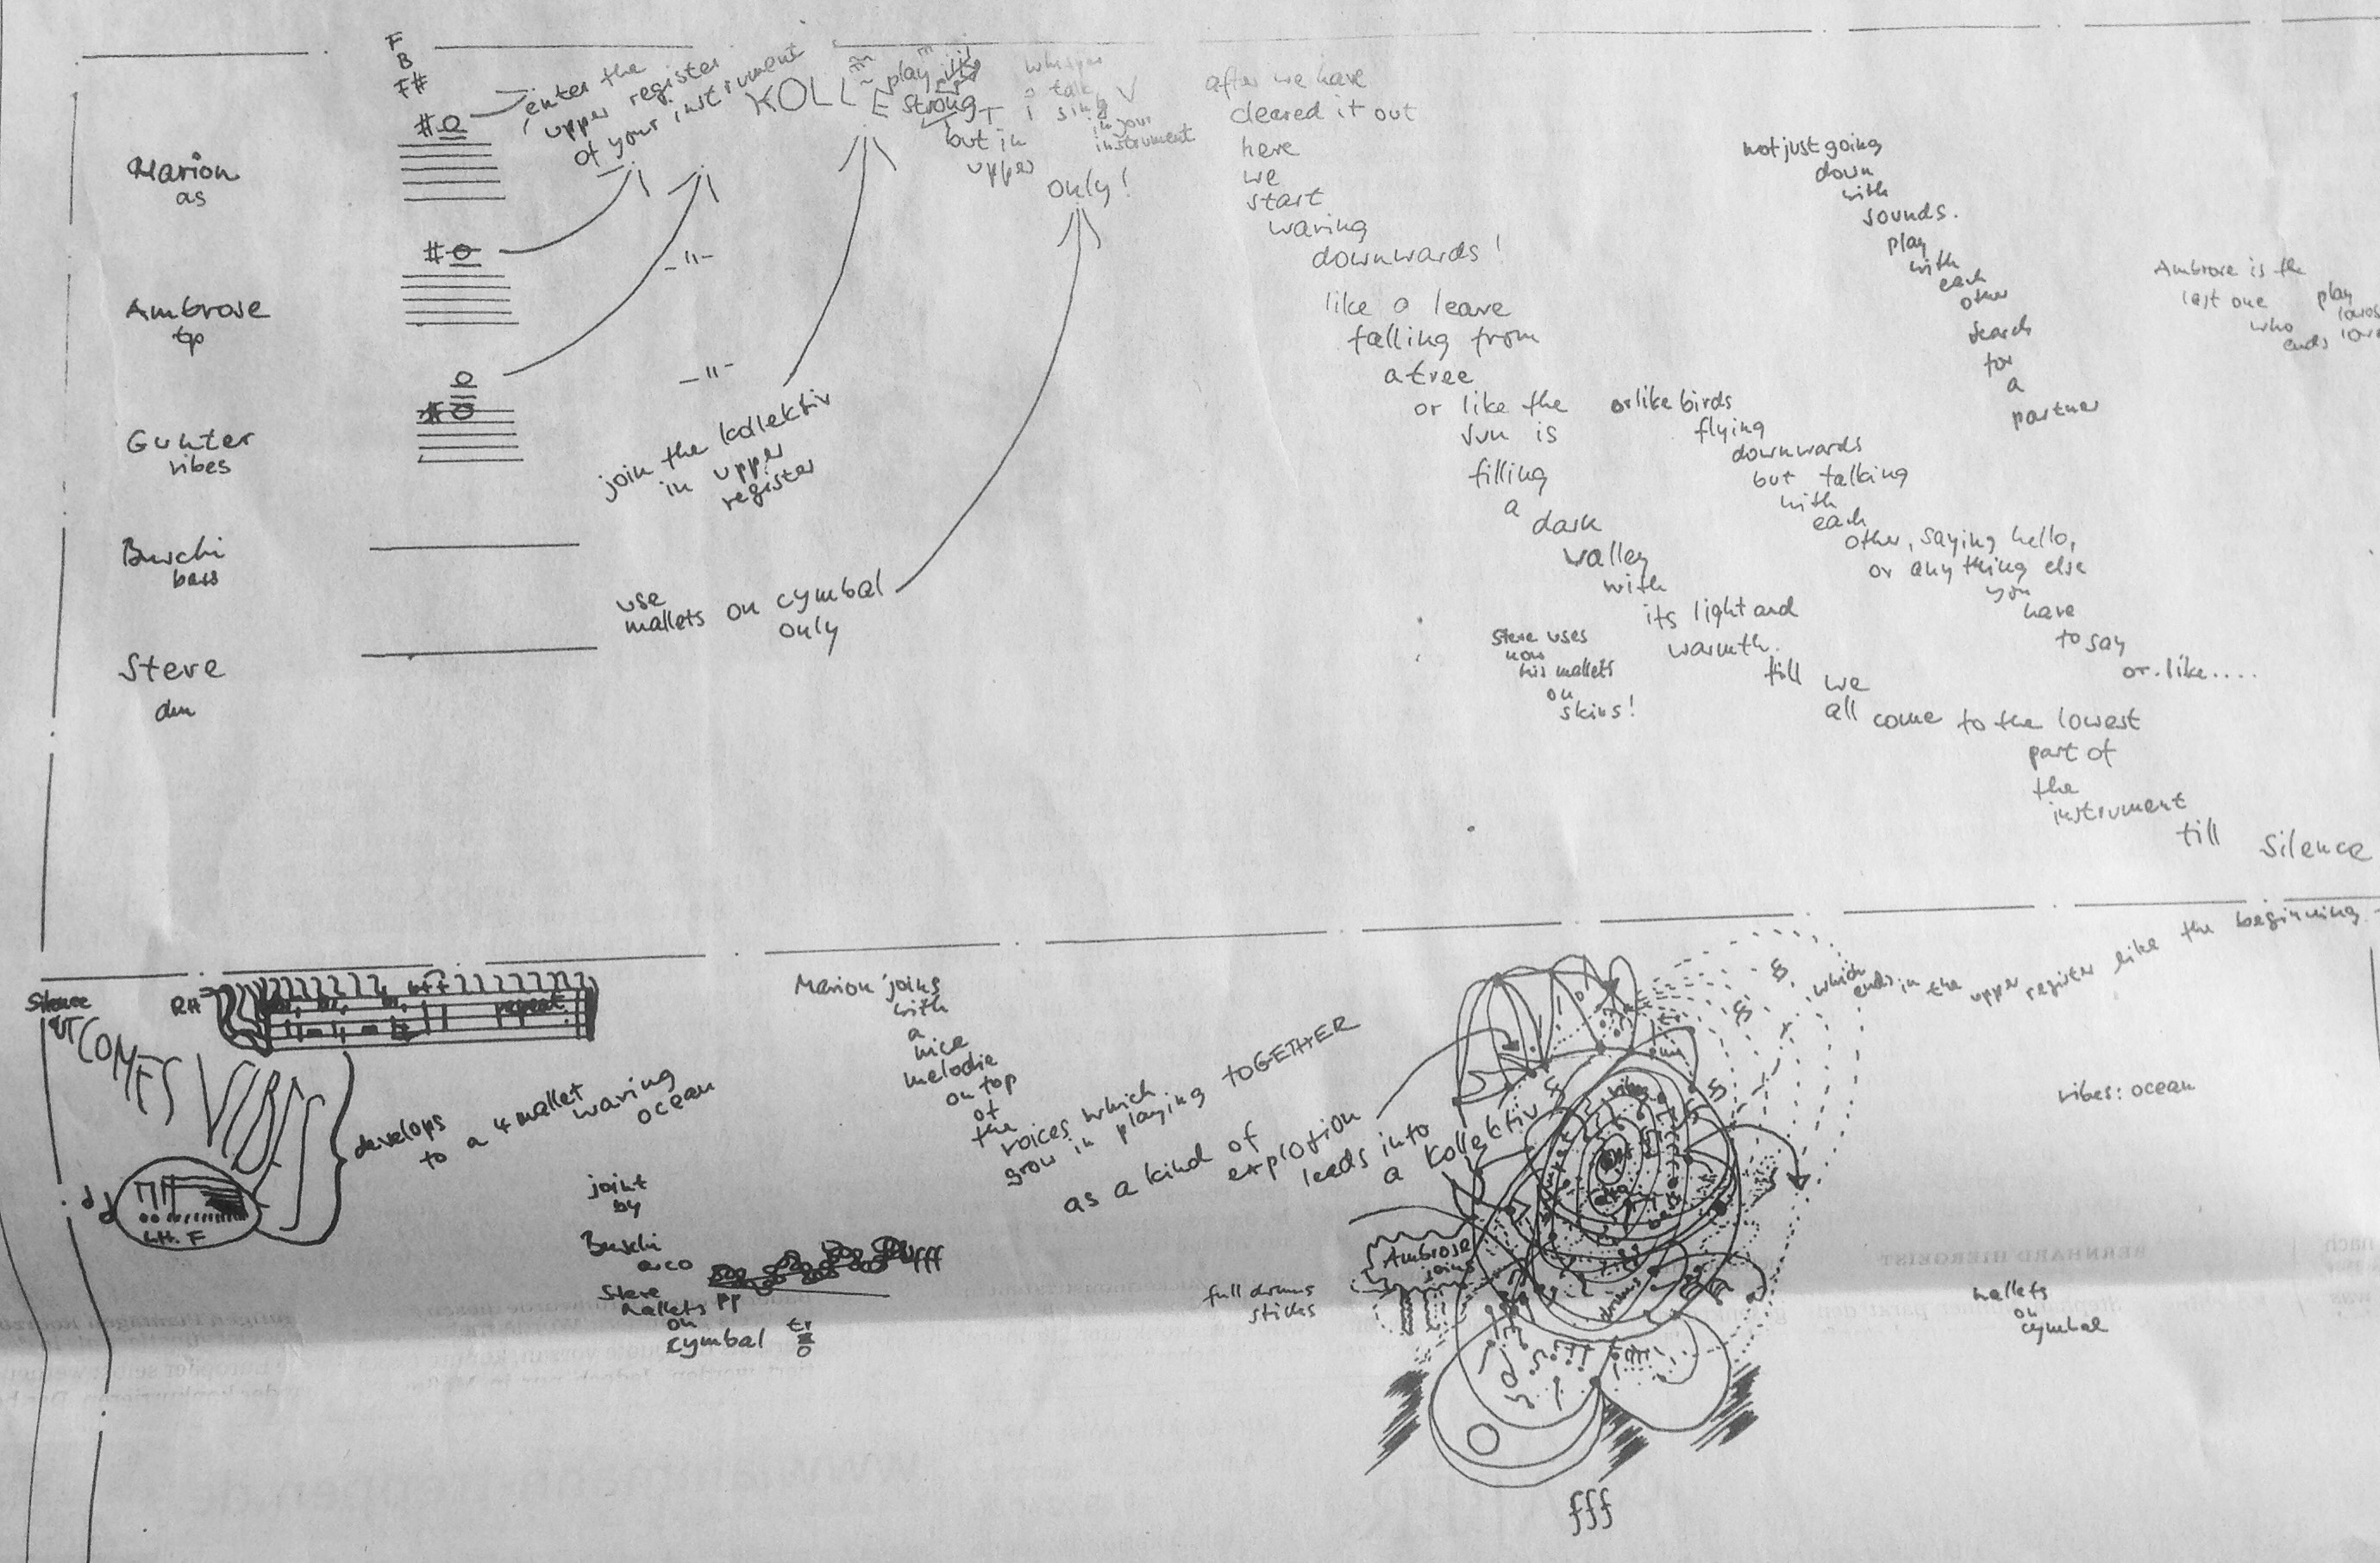 F
B
F#
Marion
as
Ambrose
tp
Gunter
vibes
Buschi
bass
Steve
dm
enter the
upper register
of your instrument
-"-
-"-
join the kollektiv
in upper
register
use
mallets on cymbal
only
KOLLE T I V
play like
strong
but in
upper
only!
whisper
talk
sing
in your
instrument
after we have
cleared it out
here
we
start
waving
downwards!
like a leave
falling from
a tree
or like the
sun is
filling
a
dark
valley
with
its light and
warmth.
till we
all come to the lowest
part of
the
instrument
till silence
Steve uses
now
his mallets
on
skins!
or like birds
flying
downwards
but talking
with
each
other, saying hello,
or anything else
you
have
to say
or like....
not just going
down
with
sounds.
play
with
each
other
search
for
a
partner
Ambrose is the
last one play
who
ends
Silence
COMES
RH
repeat
L.H. F
develops
to a 4 mallet waving
ocean
joint
by
Buschi
arco
Steve
mallets
on
cymbal
tr
pp
fff
Marion joins
with
a
nice
melodie
on top
of
the
voices which
grow in playing TOGETHER
as a kind of
explotion
leads into
a kollektiv
Ambrose
joins
full drums
sticks
vibes
drums
fff
which
ends in the upper register like the beginning
vibes: ocean
mallets
on
cymbal
BERNHARD HIERGEIST